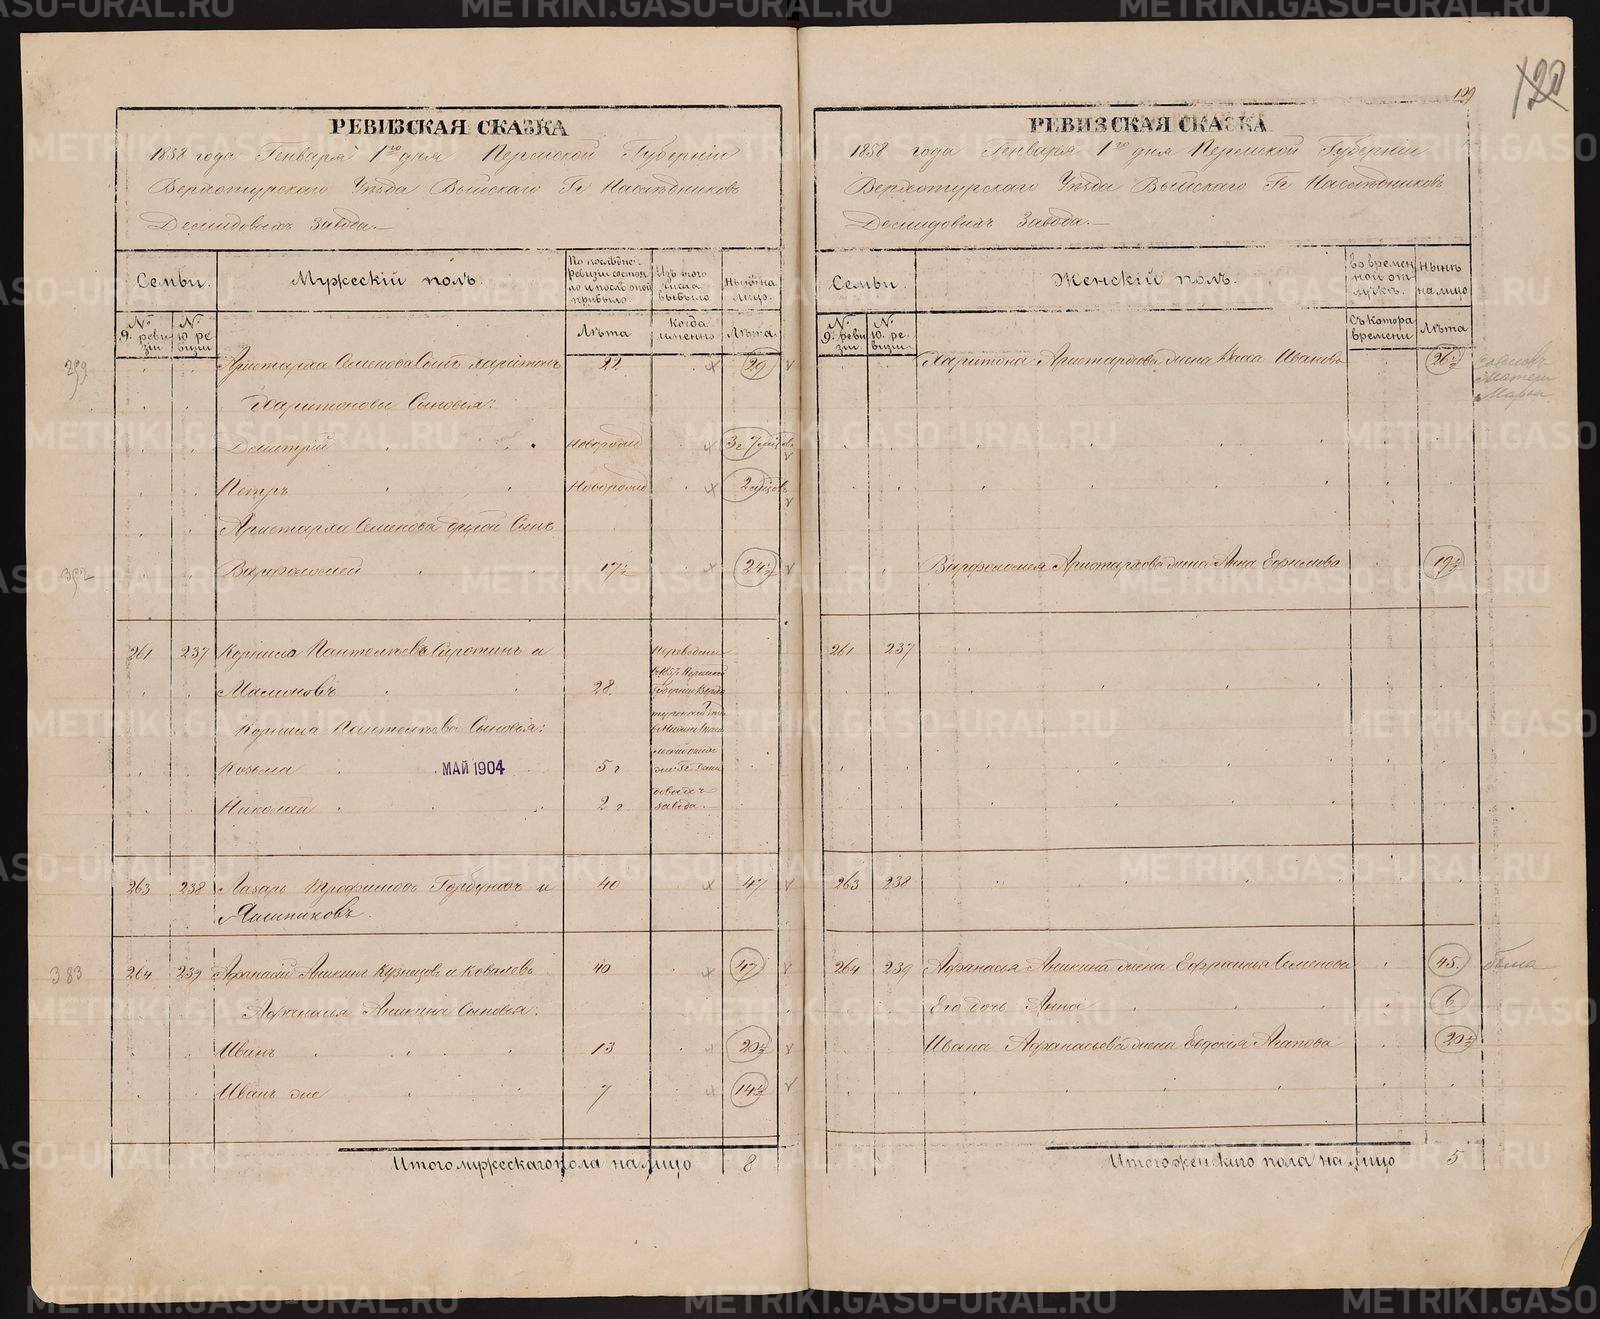 129
120
РЕВИЗСКАЯ СКАЗКА
1858 года Генваря 1го дня Пермской Губернiи
Верхотурскаго Уѣзда Выйскаго Гг Наслѣдниковъ
Демидовыхъ Завода.—
Семьи.
Мужескiй полъ.
По послѣдней ревизiи состояло и послѣ оной прибыло.
Изъ того числа выбыло
Нынѣ на лицо.
№ 9. ревизiи
№ 10. ревизiи
Лѣта
Когда именно
Лѣта
259
Аристарха Семенова Сынъ Харитонъ 22 29
Харитоновы Сыновья:
Дмитрiй Новорожд 3г 7 мѣс
Петръ Новорожд 2 мѣсяц
Аристарха Семенова другой Сынъ
Варфоломей 17½ 24½
261 237 Корнило Пантелѣевъ Сиротинъ и
Мамоновъ 28
Корнила Пантелѣева Сыновья:
Козьма МАЙ 1904 5 г
Николай 2 г
Переведены
завода.
263 238 Лазарь Трофимовъ Горбуновъ и 40 47
Ямщиковъ.
383
264 239 Афанасiй Аникинъ Кузнецовъ и Ковалевъ 40 47
Афанасья Аникина Сыновья:
Иванъ 13 20½
Иванъ же 7 14½
Итого мужескаго пола на лицо 8
РЕВИЗСКАЯ СКАЗКА
1858 года Генваря 1го дня Пермской Губернiи
Верхотурскаго Уѣзда Выйскаго Гг Наслѣдниковъ
Демидовыхъ Завода.—
Семьи.
Женскiй полъ.
во временной отлучкѣ.
Нынѣ на лицо
№ 9. ревизiи
№ 10. ревизiи
Съ котора времени
Лѣта
Харитона Аристархова жена Иванова 26½
Матери
Марьи
Варфоломея Аристархова жена Анна Ефимова 19½
261 237
263 238
264 239 Афанасья Аникина жена Ефросинья Семенова 45.
Его дочь Анна 6
Ивана Афанасьева жена Евдокiя Агапова 20½
Итого женскаго пола на лицо 5
METRIKI.GASO-URAL.RU